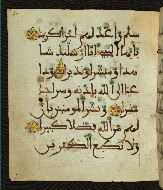 سلم واعد لهم اجرا كريما
يايها النبي انا ارسلنك شا
هدا ومبشرا ونذيرا ودا
عيا الى الله باذنه وسراجا
منيرا وبشر المومنين بان
لهم من الله فضلا كبيرا
ولا تطع الكفرين